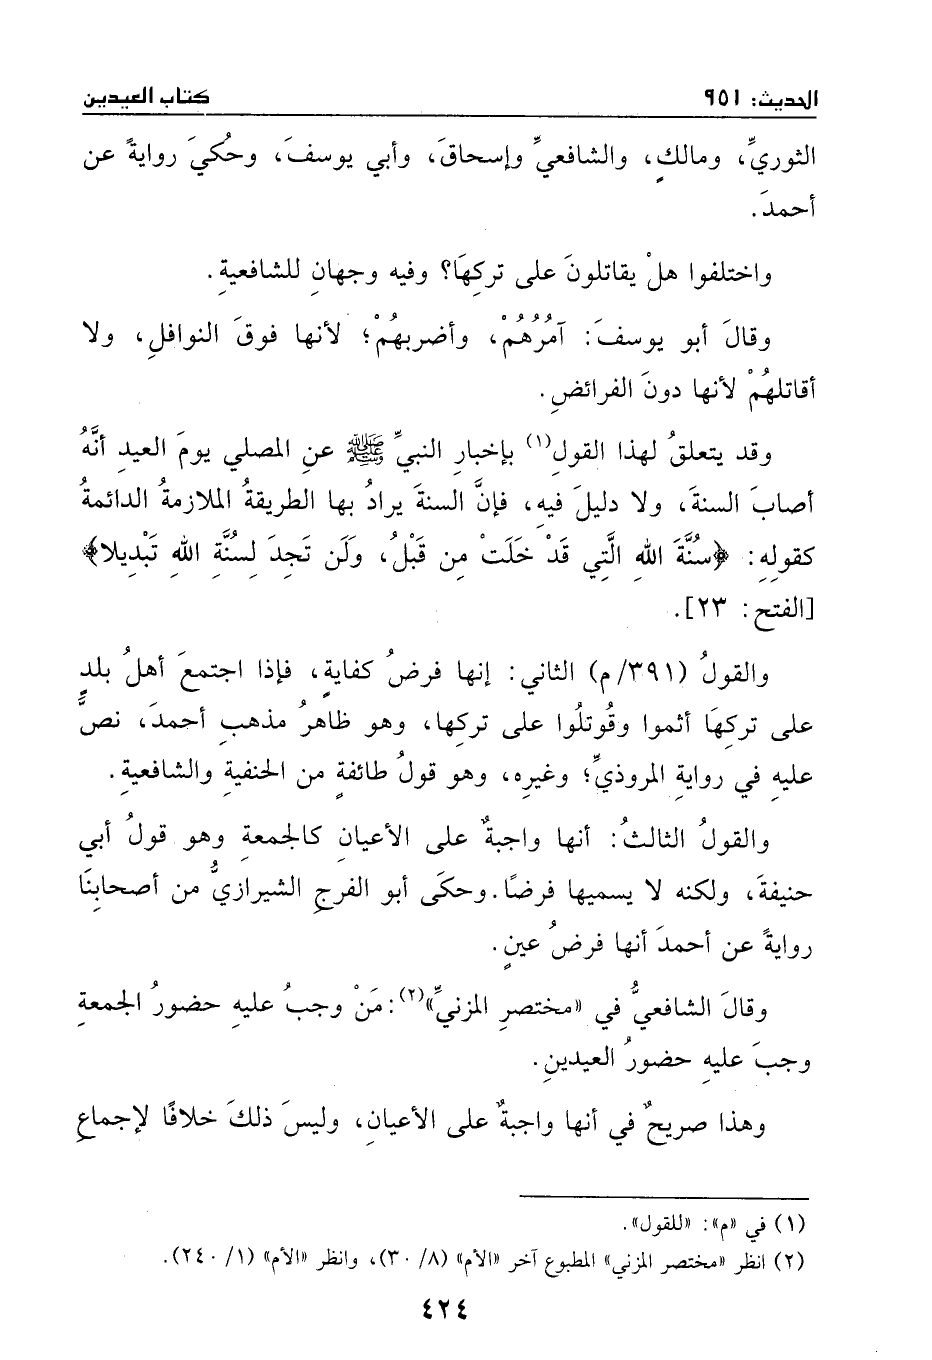 الحديث: ٩٥١ كتاب العيدين
الثوريِّ، ومالكٍ، والشافعيِّ وإسحاقَ، وأبي يوسفَ، وحُكيَ روايةً عن
أحمدَ.
واختلفوا هلْ يقاتلونَ على تركِهَا؟ وفيه وجهانِ للشافعيةِ.
وقالَ أبو يوسفَ: آمُرُهُمْ، وأضربهُمْ؛ لأنها فوقَ النوافلِ، ولا
أقاتلهُمْ لأنها دونَ الفرائضِ.
وقد يتعلقُ لهذا القولِ(١) بإخبارِ النبيِّ ﷺ عنِ المصلي يومَ العيدِ أنَّهُ
أصابَ السنةَ، ولا دليلَ فيهِ، فإنَّ السنةَ يرادُ بها الطريقةُ الملازمةُ الدائمةُ
كقولِهِ: ﴿سُنَّةَ اللهِ الَّتِي قَدْ خَلَتْ مِن قَبْلُ، وَلَن تَجِدَ لِسُنَّةِ اللهِ تَبْدِيلا﴾
[الفتح: ٢٣].
والقولُ (٣٩١/م) الثاني: إنها فرضُ كفايةٍ، فإذا اجتمعَ أهلُ بلدٍ
على تركِهَا أثموا وقُوتلُوا على تركِها، وهو ظاهرُ مذهبِ أحمدَ، نصَّ
عليهِ في روايةِ المروذيِّ؛ وغيرِه، وهو قولُ طائفةٍ من الحنفيةِ والشافعيةِ.
والقولُ الثالثُ: أنها واجبةٌ على الأعيانِ كالجمعةِ وهو قولُ أبي
حنيفةَ، ولكنه لا يسميها فرضًا. وحكَى أبو الفرجِ الشيرازيُّ من أصحابِنَا
روايةً عن أحمدَ أنها فرضُ عينٍ.
وقالَ الشافعيُّ في «مختصرِ المزنيِّ»(٢): مَنْ وجبُ عليهِ حضورُ الجمعةِ
وجبَ عليهِ حضورُ العيدينِ.
وهذا صريحٌ في أنها واجبةٌ على الأعيانِ، وليسَ ذلكَ خلافًا لإجماعِ
(١) في «م»: «للقول».
(٢) انظر «مختصر المزني» المطبوع آخر «الأم» (٨/ ٣٠)، وانظر «الأم» (١/ ٢٤٠).
٤٢٤